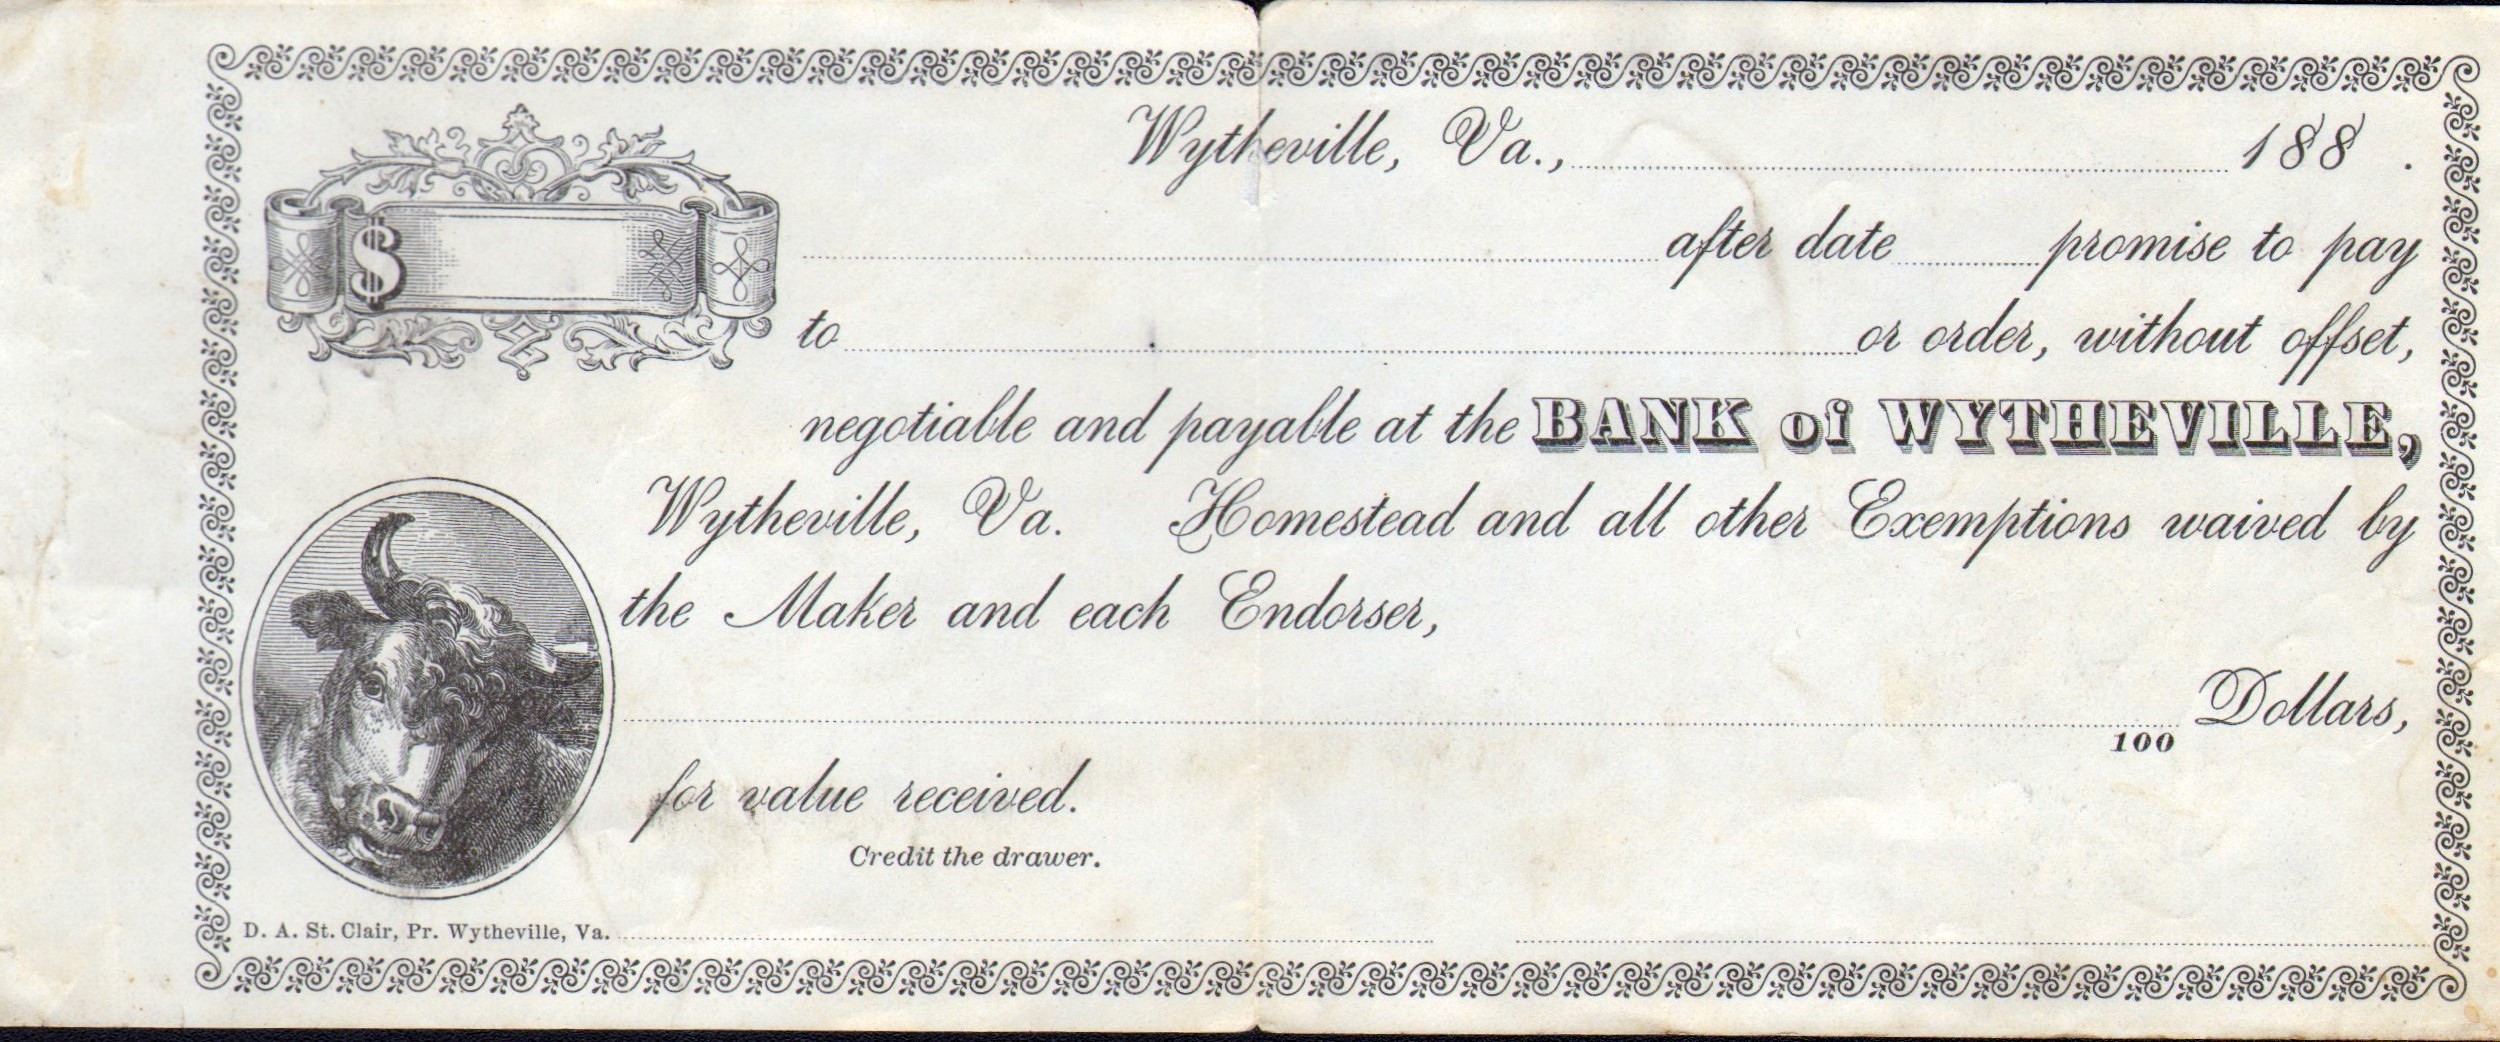 Wytheville, Va., 188 .
$
after date promise to pay
to or order, without offset,
negotiable and payable at the BANK of WYTHEVILLE,
Wytheville, Va. Homestead and all other Exemptions waived by
the Maker and each Endorser,
Dollars,
100
for value received.
Credit the drawer.
D. A. St. Clair, Pr. Wytheville, Va.